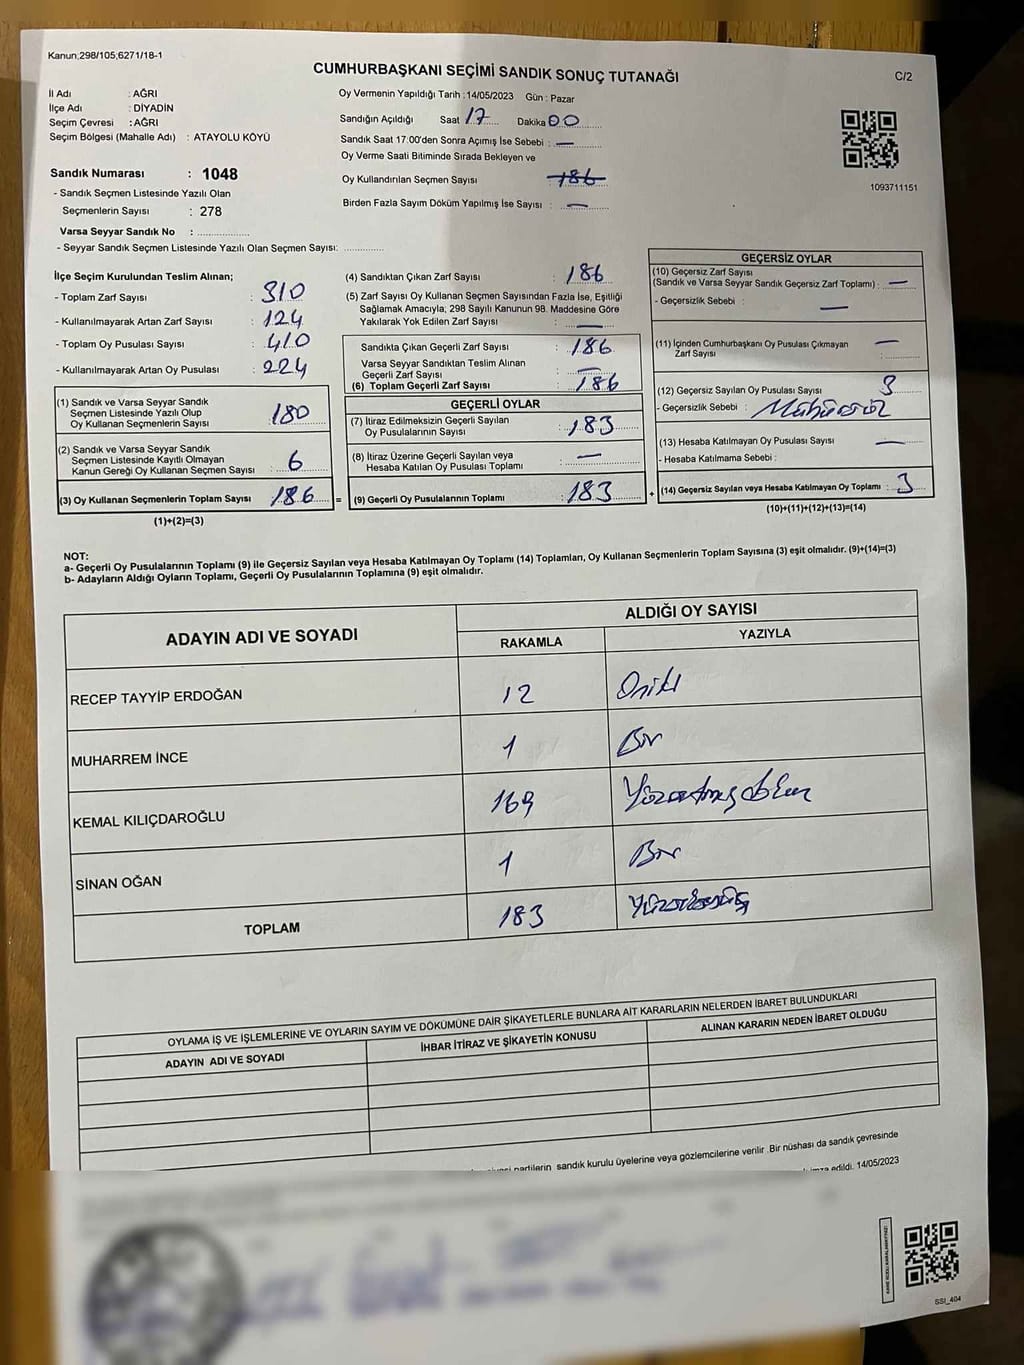 Kanun;298/105,6271/18-1
CUMHURBAŞKANI SEÇİMİ SANDIK SONUÇ TUTANAĞI
C/2
İl Adı : AĞRI
İlçe Adı : DİYADİN
Seçim Çevresi : AĞRI
Seçim Bölgesi (Mahalle Adı) : ATAYOLU KÖYÜ
Sandık Numarası : 1048
- Sandık Seçmen Listesinde Yazılı Olan
Seçmenlerin Sayısı : 278
Varsa Seyyar Sandık No :
- Seyyar Sandık Seçmen Listesinde Yazılı Olan Seçmen Sayısı:
Oy Vermenin Yapıldığı Tarih : 14/05/2023 Gün : Pazar
Sandığın Açıldığı Saat 17 Dakika 00
Sandık Saat 17.00'den Sonra Açımış İse Sebebi : —
Oy Verme Saati Bitiminde Sırada Bekleyen ve
Oy Kullandırılan Seçmen Sayısı : 186
Birden Fazla Sayım Döküm Yapılmış İse Sayısı : —
1093711151
İlçe Seçim Kurulundan Teslim Alınan;
- Toplam Zarf Sayısı : 310
- Kullanılmayarak Artan Zarf Sayısı : 124
- Toplam Oy Pusulası Sayısı : 410
- Kullanılmayarak Artan Oy Pusulası : 224
(1) Sandık ve Varsa Seyyar Sandık
Seçmen Listesinde Yazılı Olup
Oy Kullanan Seçmenlerin Sayısı : 180
(2) Sandık ve Varsa Seyyar Sandık
Seçmen Listesinde Kayıtlı Olmayan
Kanun Gereği Oy Kullanan Seçmen Sayısı : 6
(3) Oy Kullanan Seçmenlerin Toplam Sayısı : 186 =
(1)+(2)=(3)
(4) Sandıktan Çıkan Zarf Sayısı : 186
(5) Zarf Sayısı Oy Kullanan Seçmen Sayısından Fazla İse, Eşitliği
Sağlamak Amacıyla; 298 Sayılı Kanunun 98. Maddesine Göre
Yakılarak Yok Edilen Zarf Sayısı : —
Sandıkta Çıkan Geçerli Zarf Sayısı : 186
Varsa Seyyar Sandıktan Teslim Alınan
Geçerli Zarf Sayısı : —
(6) Toplam Geçerli Zarf Sayısı : 186
GEÇERLİ OYLAR
(7) İtiraz Edilmeksizin Geçerli Sayılan
Oy Pusulalarının Sayısı : 183
(8) İtiraz Üzerine Geçerli Sayılan veya
Hesaba Katılan Oy Pusulası Toplamı : —
(9) Geçerli Oy Pusulalarının Toplamı : 183 +
GEÇERSİZ OYLAR
(10) Geçersiz Zarf Sayısı
(Sandık ve Varsa Seyyar Sandık Geçersiz Zarf Toplamı) : —
- Geçersizlik Sebebi : —
(11) İçinden Cumhurbaşkanı Oy Pusulası Çıkmayan
Zarf Sayısı : —
(12) Geçersiz Sayılan Oy Pusulası Sayısı : 3
- Geçersizlik Sebebi : Mühürsüz
(13) Hesaba Katılmayan Oy Pusulası Sayısı : —
- Hesaba Katılmama Sebebi :
(14) Geçersiz Sayılan veya Hesaba Katılmayan Oy Toplamı : 3
(10)+(11)+(12)+(13)=(14)
NOT:
a- Geçerli Oy Pusulalarının Toplamı (9) ile Geçersiz Sayılan veya Hesaba Katılmayan Oy Toplamı (14) Toplamları, Oy Kullanan Seçmenlerin Toplam Sayısına (3) eşit olmalıdır. (9)+(14)=(3)
b- Adayların Aldığı Oyların Toplamı, Geçerli Oy Pusulalarının Toplamına (9) eşit olmalıdır.
ADAYIN ADI VE SOYADI ALDIĞI OY SAYISI
RAKAMLA YAZIYLA
RECEP TAYYİP ERDOĞAN 12 Oniki
MUHARREM İNCE 1 Bir
KEMAL KILIÇDAROĞLU 169 Yüzaltmışdokuz
SİNAN OĞAN 1 Bir
TOPLAM 183 Yüzseksenüç
OYLAMA İŞ VE İŞLEMLERİNE VE OYLARIN SAYIM VE DÖKÜMÜNE DAİR ŞİKAYETLERLE BUNLARA AİT KARARLARIN NELERDEN İBARET BULUNDUKLARI
ADAYIN ADI VE SOYADI İHBAR İTİRAZ VE ŞİKAYETİN KONUSU ALINAN KARARIN NEDEN İBARET OLDUĞU
partilerin sandık kurulu üyelerine veya gözlemcilerine verilir. Bir nüshası da sandık çevresinde
edildi. 14/05/2023
SSI_404